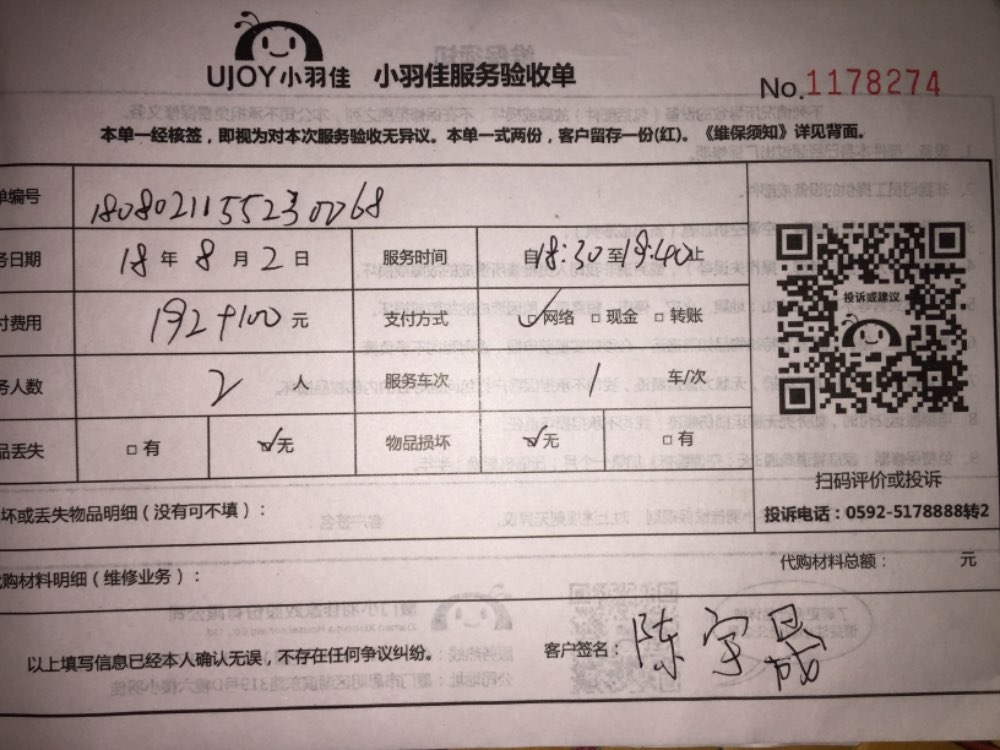 UJOY小羽佳 小羽佳服务验收单
No.1178274
本单一经核签，即视为对本次服务验收无异议。本单一式两份，客户留存一份(红)。《维保须知》详见背面。
单编号 18080211552300068
务日期 18 年 8 月 2 日 服务时间 自18:30至19:40止
付费用 192+100 元 支付方式 ☑网络 □现金 □转账
务人数 2 人 服务车次 1 车/次
品丢失 □有 ☑无 物品损坏 ☑无 □有
投诉或建议
扫码评价或投诉
投诉电话：0592-5178888转2
坏或丢失物品明细（没有可不填）：
代购材料明细（维修业务）： 代购材料总额： 元
以上填写信息已经本人确认无误，不存在任何争议纠纷。 客户签名：陈宇晟